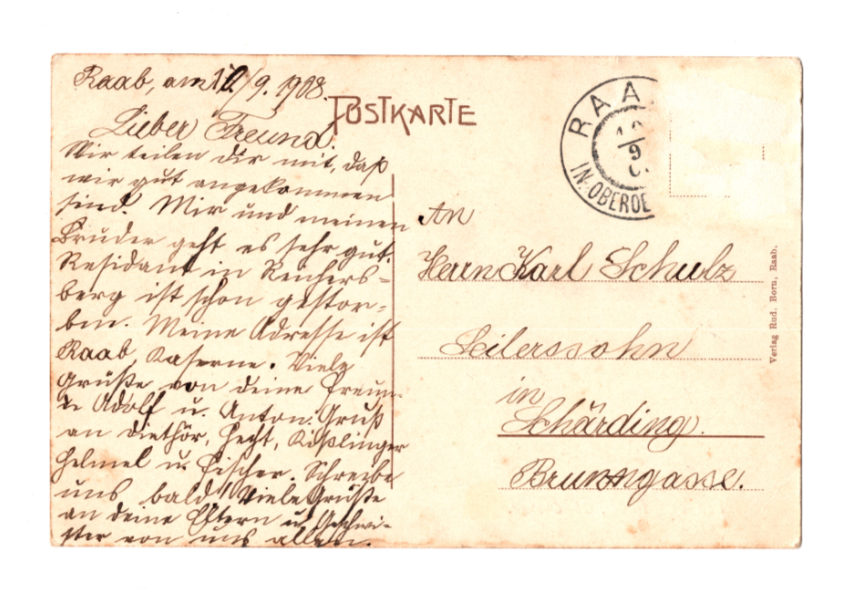 Raab, am 10/9. 1908.
POSTKARTE
Lieber Freund!
Wir teilen dir mit, daß
wir gut angekommen
sind. Mir und meinen
Bruder geht es sehr gut.
Residant in Reichers=
berg ist schon gestor=
ben. Meine Adresse ist
Raab, Kaserne. Viele
Grüße von deine Freun=
de Adolf u. Anton. Gruß
an Diethör, Hecht, Kißlinger
Helmel u. Fischer. Schreibe
uns bald! Viele Grüße
an deine Eltern u. Geschwi=
ster von uns allen.
RAA
9
IN OBEROE
An
Herrn Karl Schulz
Seilerssohn
in
Schärding.
Brunngasse.
Verlag Rud. Born, Raab.